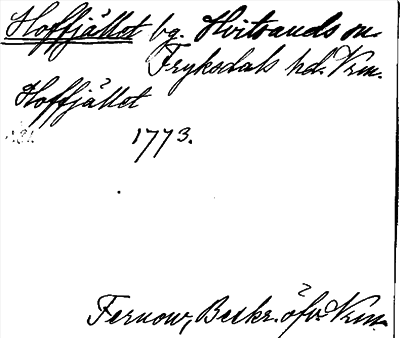 Hoffjället bg. Hvitsands sn.
Fryksdals hd. Vrm.
Hoffjället
1773.
Fernow, Beskr. öfv. Vrm.